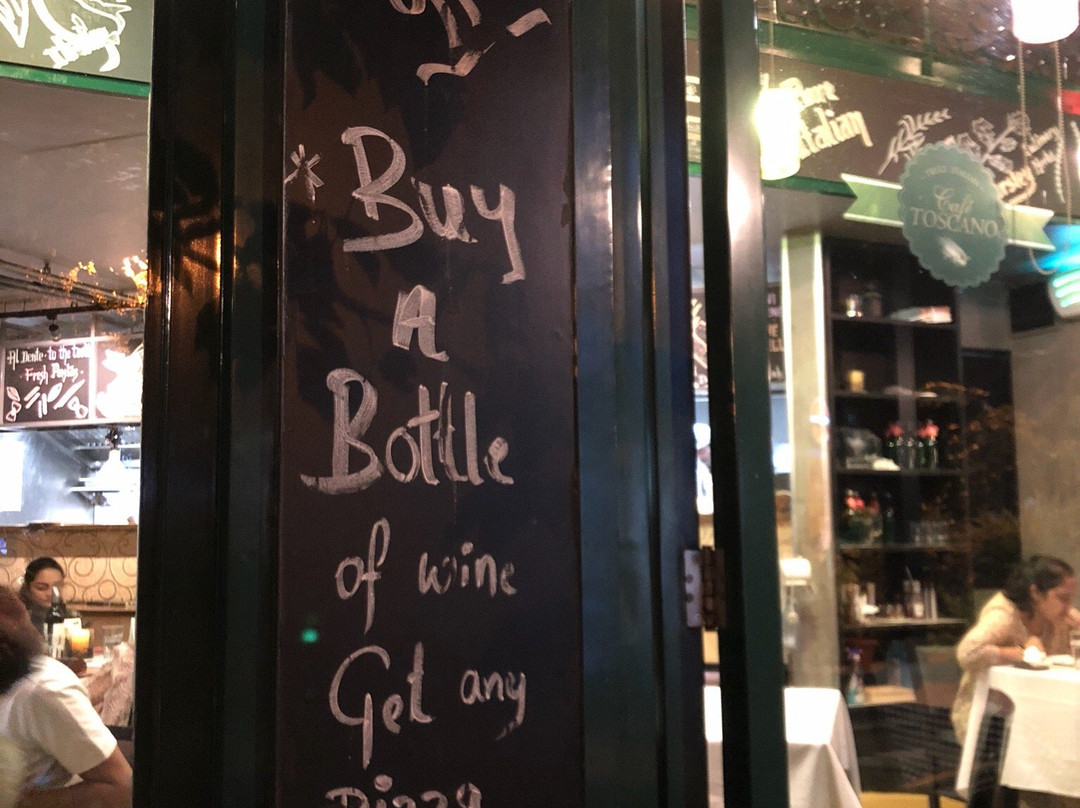 * Buy
A
Bottle
of wine
Get any
Pizza
Al Dente - to the tooth
Fresh Pastas
Pure
Italian
TRULY ITALIAN
Café
TOSCANO